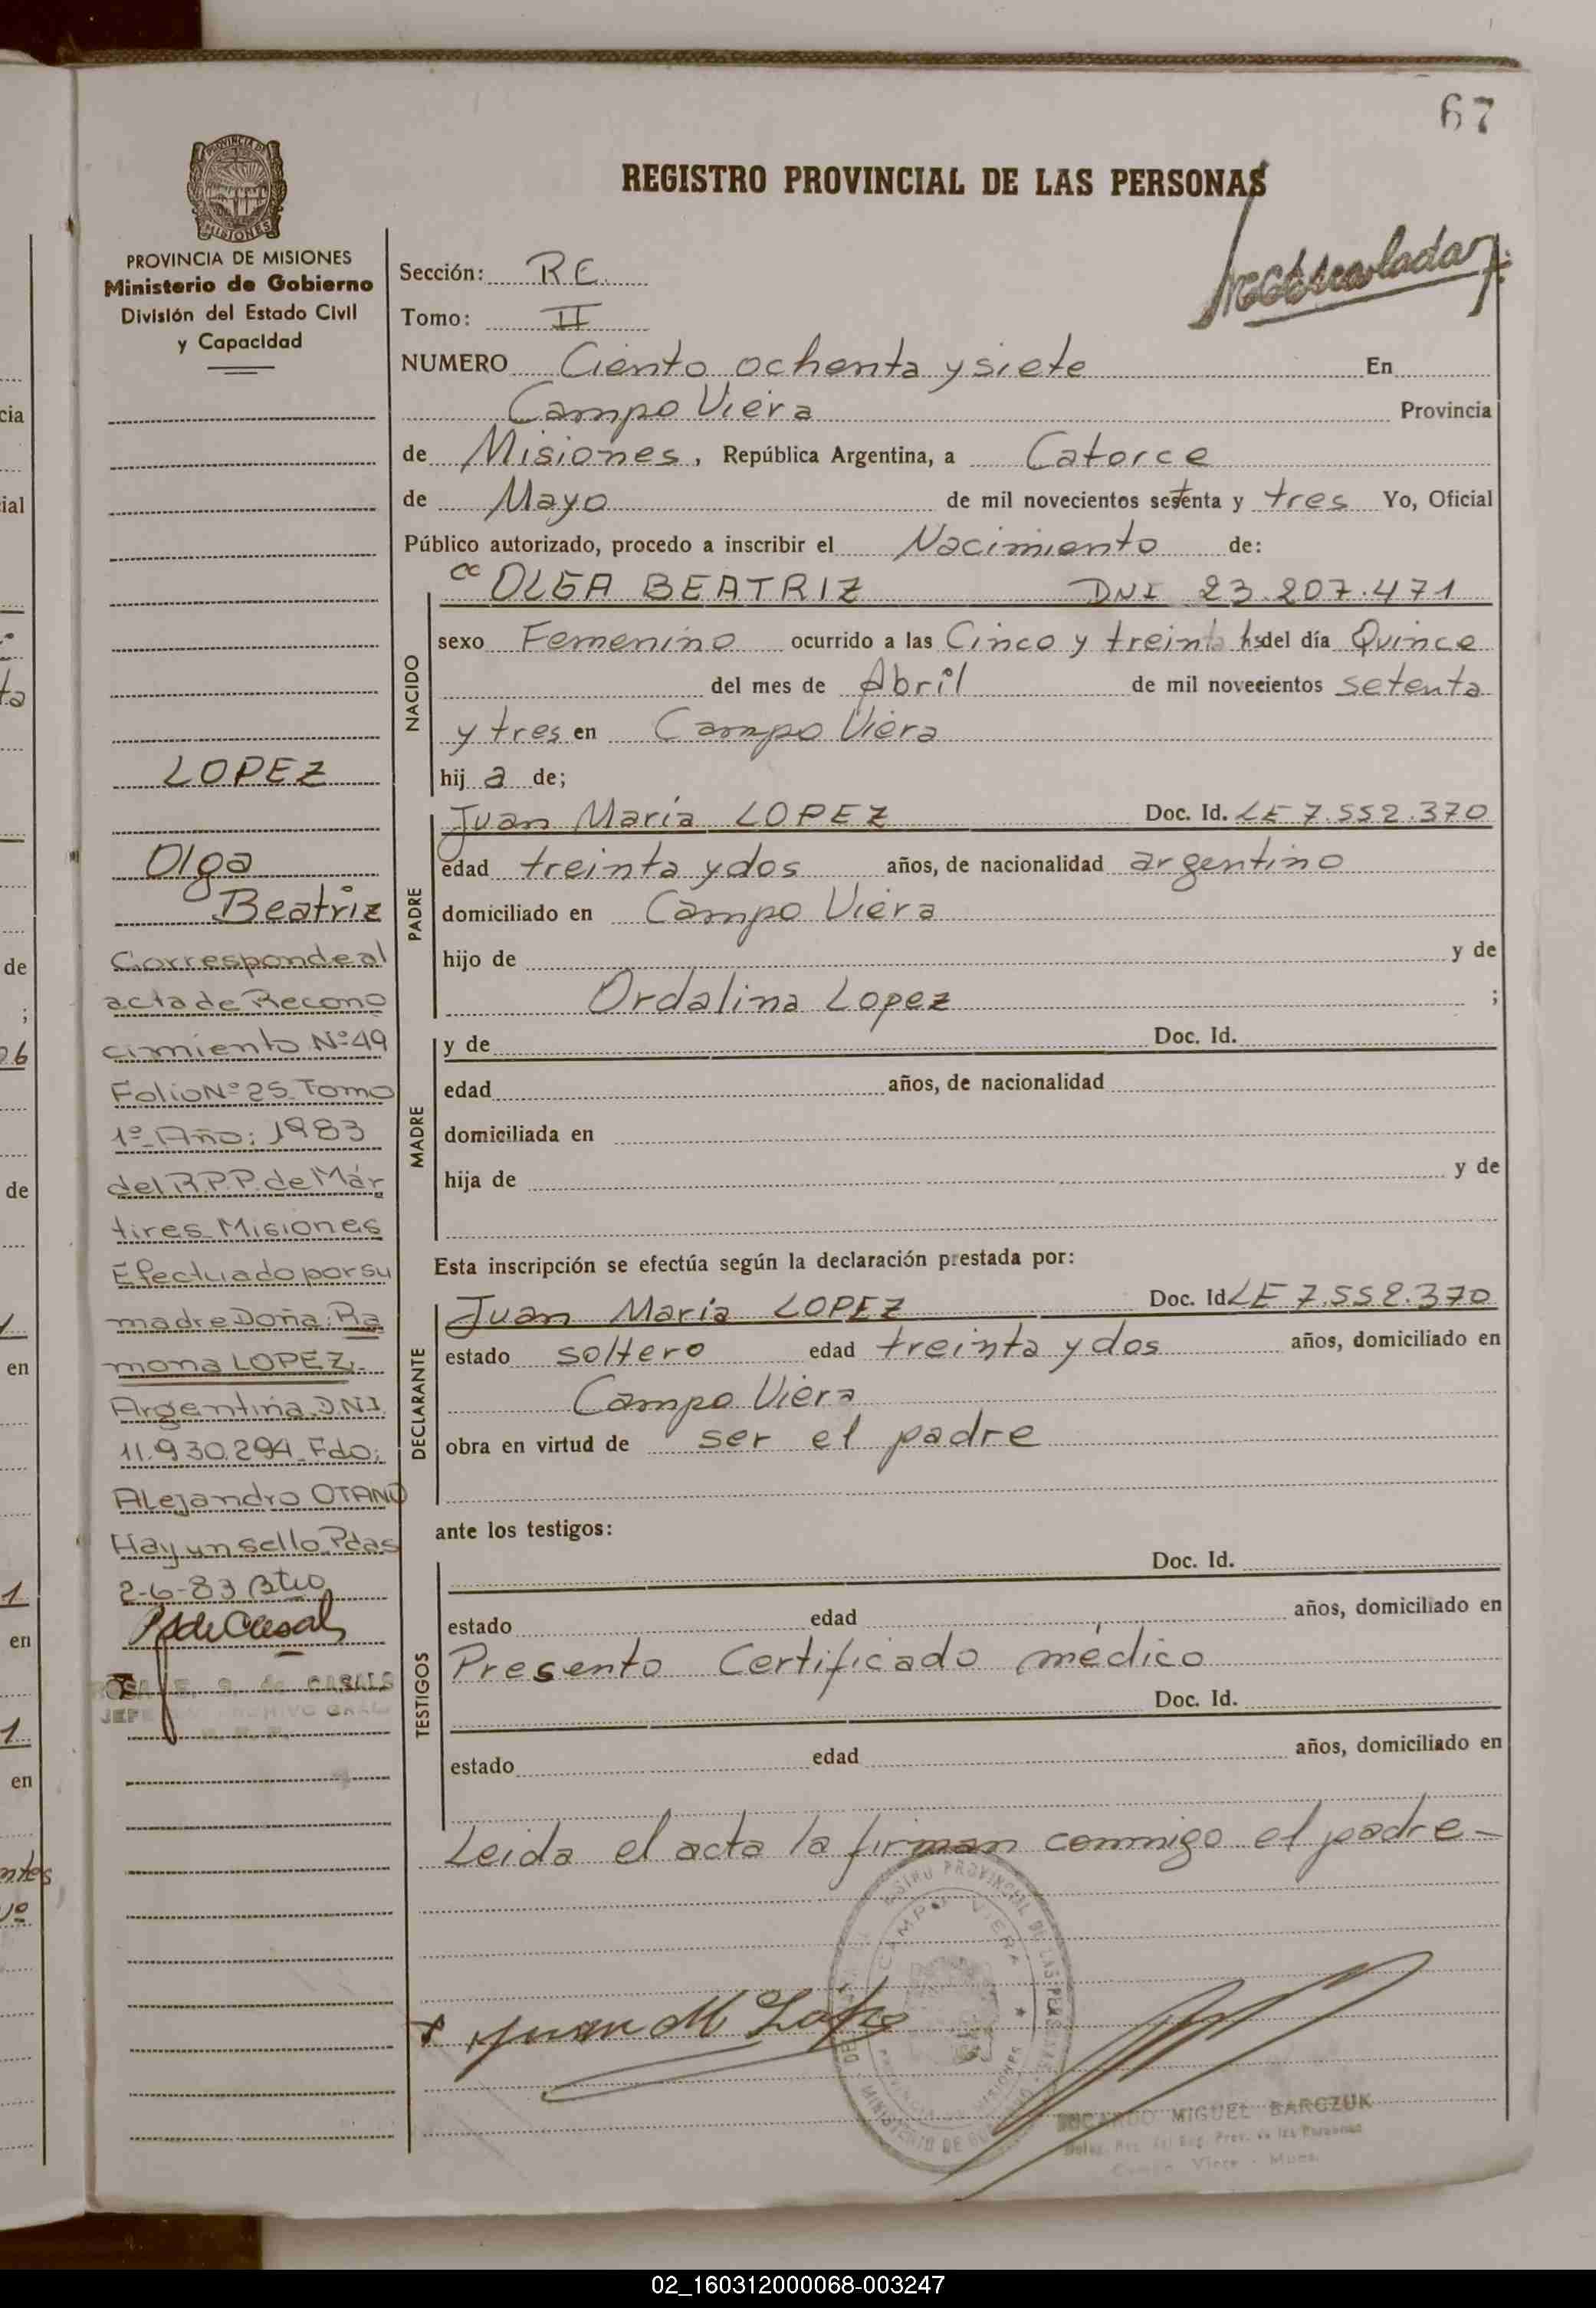 67
REGISTRO PROVINCIAL DE LAS PERSONAS
PROVINCIA DE MISIONES
Ministerio de Gobierno
División del Estado Civil
y Capacidad
Sección: RE.
Tomo: II
NUMERO Ciento ochenta y siete En
Campo Viera Provincia
de Misiones, República Argentina, a Catorce
de Mayo de mil novecientos setenta y tres Yo, Oficial
Público autorizado, procedo a inscribir el Nacimiento de:
OLGA BEATRIZ DNI 23.207.471
NACIDO
sexo Femenino ocurrido a las Cinco y treinta hs del día Quince
del mes de Abril de mil novecientos setenta
y tres en Campo Viera
hij a de;
PADRE
Juan María LOPEZ Doc. Id. LE 7.552.370
edad treinta y dos años, de nacionalidad argentino
domiciliado en Campo Viera
hijo de y de
Ordalina Lopez ;
MADRE
y de Doc. Id.
edad años, de nacionalidad
domiciliada en
hija de y de
Esta inscripción se efectúa según la declaración prestada por:
DECLARANTE
Juan María LOPEZ Doc. Id LE 7.552.370
estado soltero edad treinta y dos años, domiciliado en
Campo Viera
obra en virtud de ser el padre
ante los testigos:
TESTIGOS
Doc. Id.
estado edad años, domiciliado en
Presento Certificado médico
Doc. Id.
estado edad años, domiciliado en
Leida el acta la firman conmigo el padre-
Juan M Lopez
CAMPO VIERA
MIGUEL BARCZUK
LOPEZ
Olga
Beatriz
Corresponde al
acta de Recono
cimiento Nº 49
Folio Nº 25 Tomo
1º Año: 1983
del R.P.P. de Már
tires Misiones
Efectuado por su
madre Doña: Ra
mona LOPEZ,
Argentina D.N.I.
11.930.294 Fdo:
Alejandro OTAÑO
Hay un sello Pdas
2-6-83
02_160312000068-003247